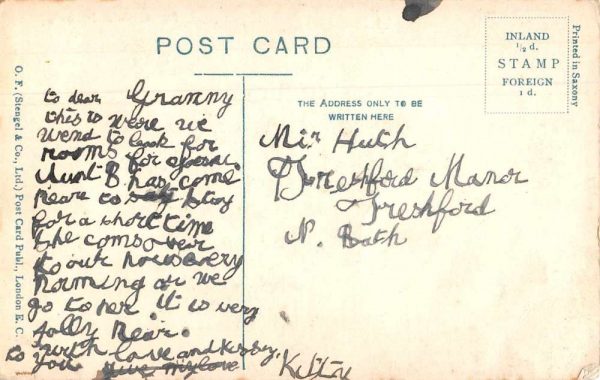 POST CARD
INLAND
½ d.
STAMP
FOREIGN
1 d.
Printed in Saxony
O. F. (Stengel & Co., Ltd.) Post Card Publ., London E. C.
THE ADDRESS ONLY TO BE
WRITTEN HERE
to dear Granny
this is were we
wend to look for
rooms for
Aunt B. has come
near to stay
for a short time
She coms over
to our house every
morning or we
go to her it is very
jolly near.
with love and kisses
to you give my love
Kitty
Hutch
Freshford Manor
Freshford
N. Bath